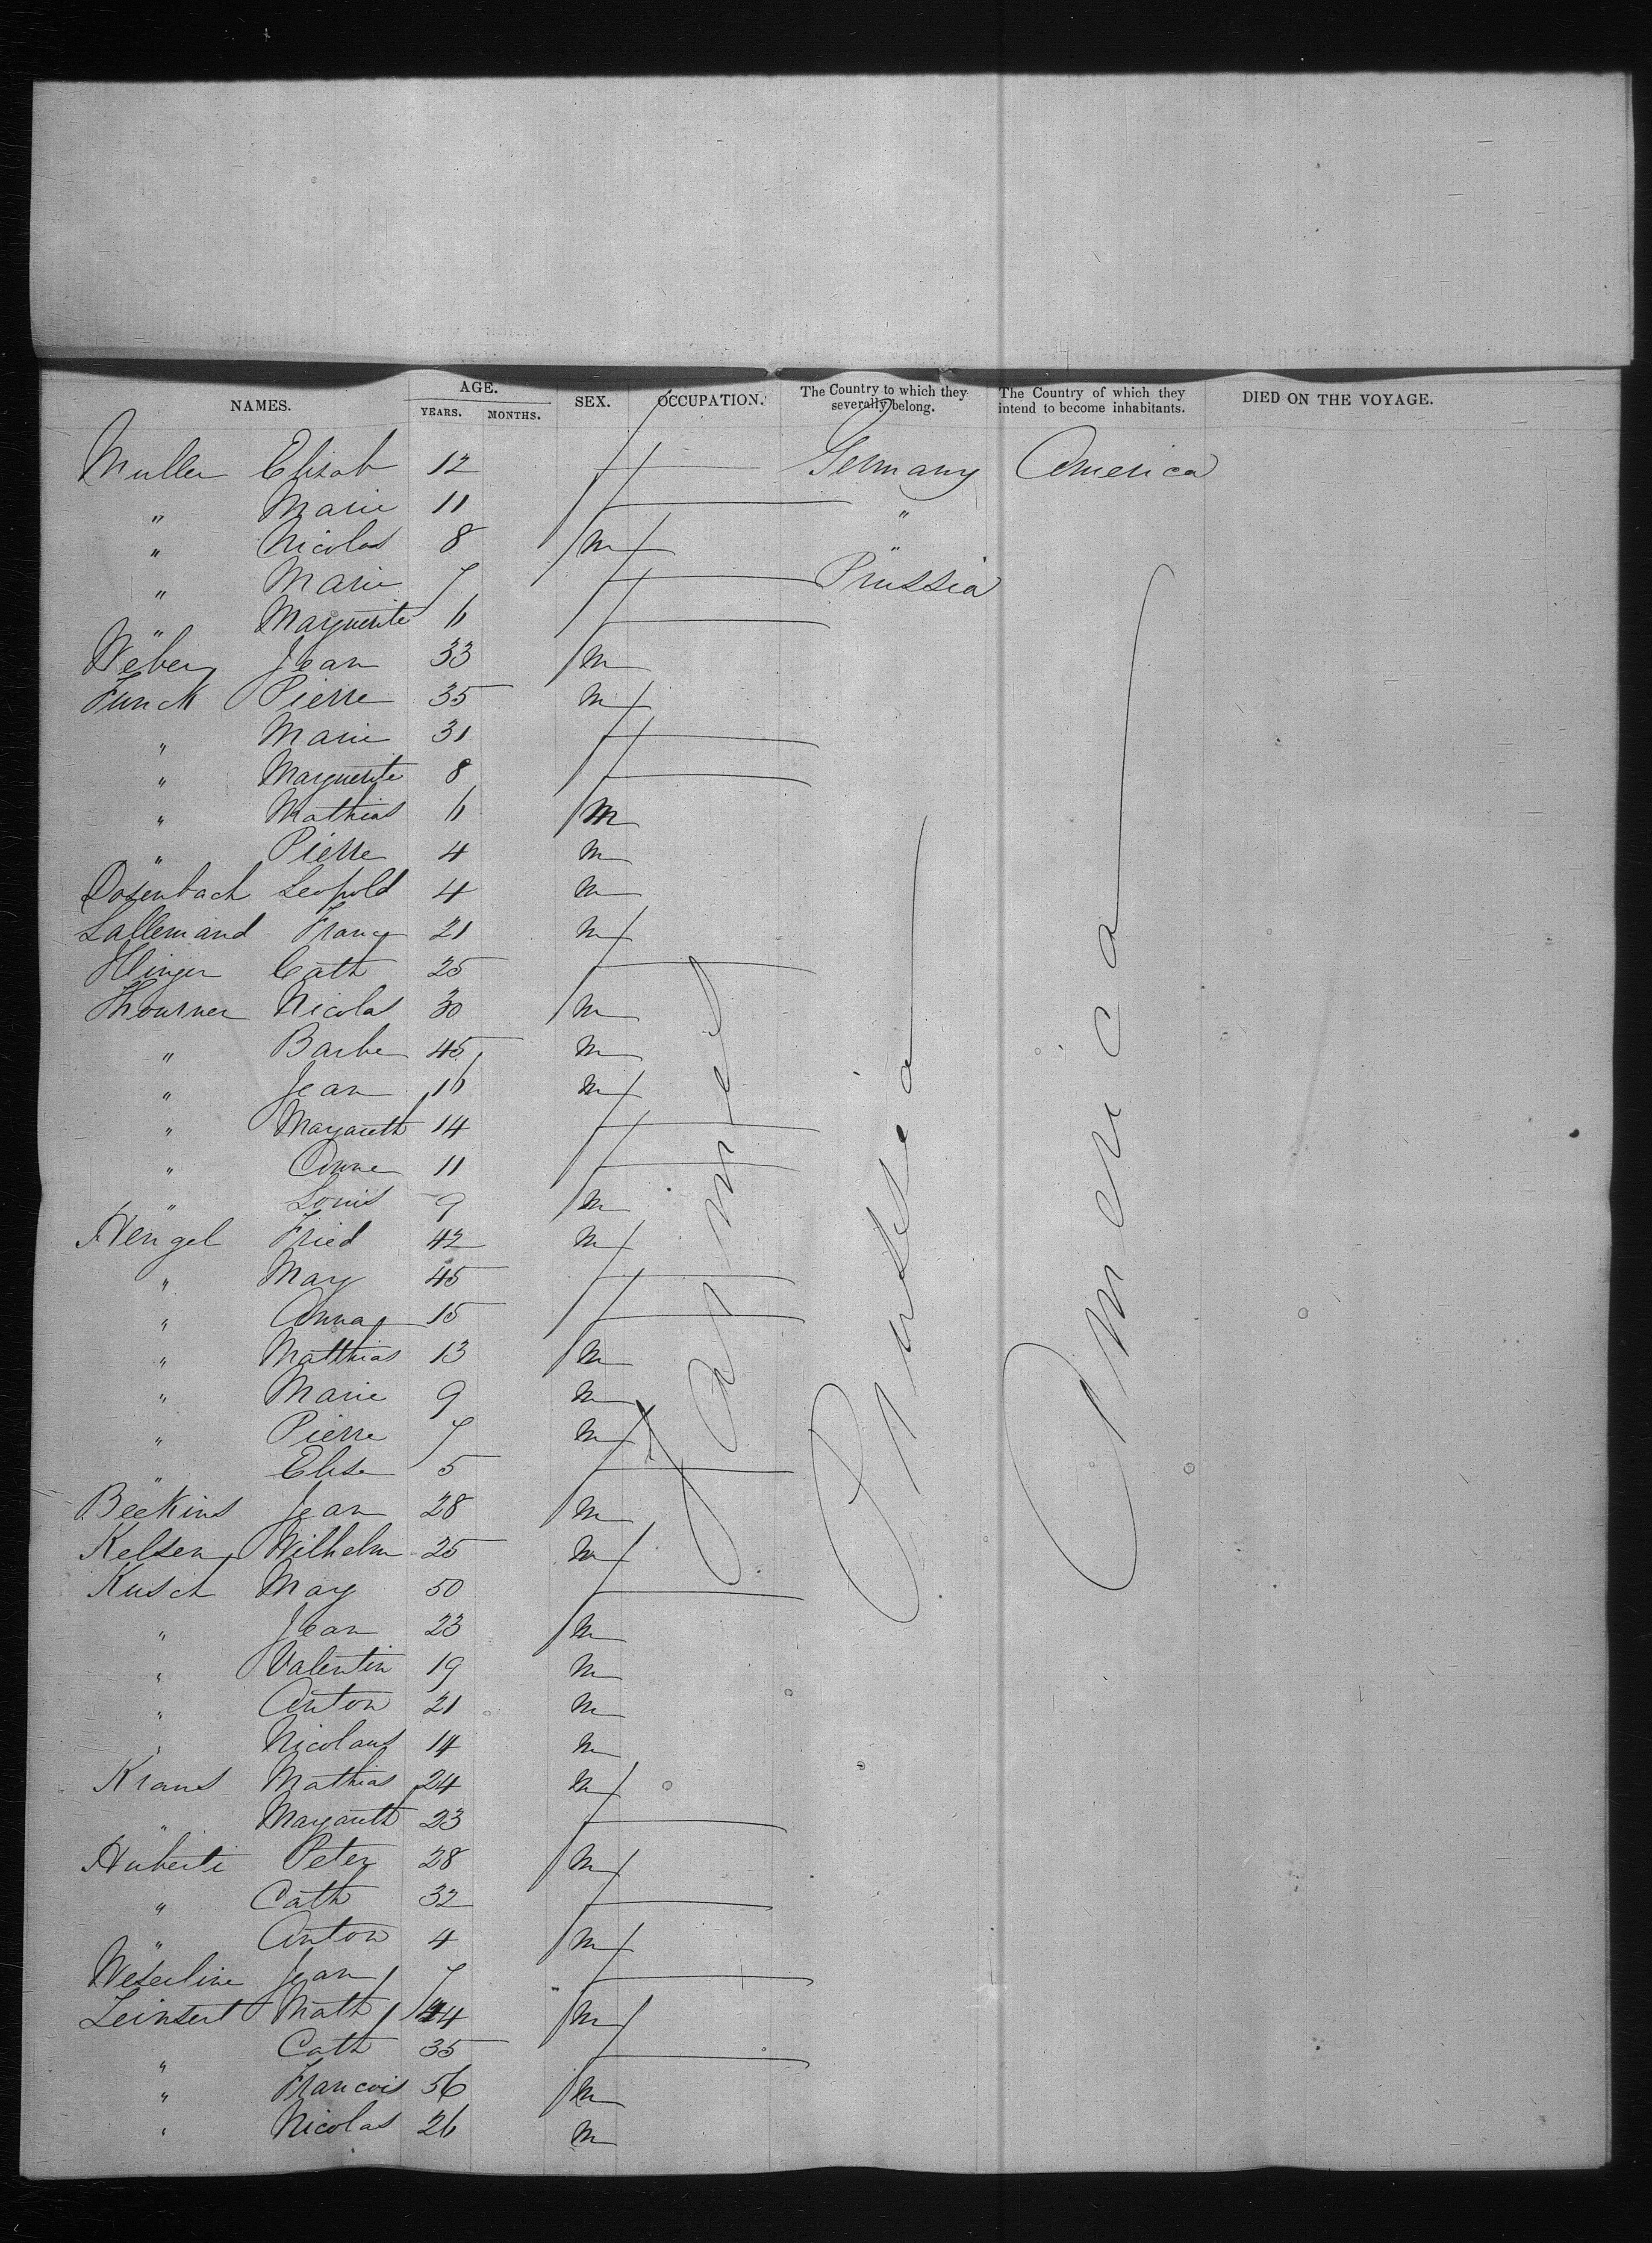 NAMES. AGE. YEARS. MONTHS. SEX. OCCUPATION. The Country to which they severally belong. The Country of which they intend to become inhabitants. DIED ON THE VOYAGE.
Muller Elisab 12 f Germany America
" Marie 11 f "
" Nicolas 8 m "
" Marie 7 f Prussia
" Marguerite 6 f
Weber Jean 33 m
Funck Pierre 35 m
" Marie 31 f
" Marguerite 8 f
" Mathias 6 m
" Pierre 4 m
Dosenbach Leopold 4 m
Lallemand Franç 21 m
Cath 25 f
Thourner Nicolas 30 m
" Barbe 45 m
" Jean 16 m
" Margareth 14 f
" Anne 11 f
" Louis 9 m
Hengel Fried 42 m
" Mary 45 f
" Anna 15 f
" Matthias 13 m
" Marie 9 m
" Pierre 7 m
" Elise 5 f
Beekins Jean 28 m
Kelsen Wilhelm 25 m
Kusch May 50 f
" Jean 23 m
" Valentin 19 m
" Anton 21 m
" Nicolaus 14 m
Kraus Mathias 24 m
" Margareth 23 f
Huberti Peter 28 m
" Cath 32 f
" Anton 4 m
Jean 7 f
Leinsert Math 44 m
" Cath 35 f
" Francois 56 m
" Nicolas 26 m
Farmer
Prussia
America